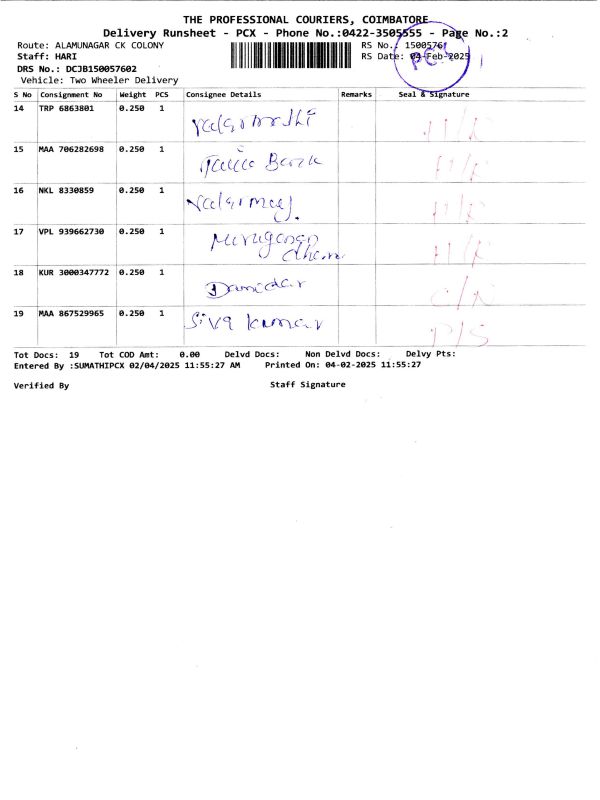 THE PROFESSIONAL COURIERS, COIMBATORE
Delivery Runsheet - PCX - Phone No.:0422-3505555 - Page No.:2
Route: ALAMUNAGAR CK COLONY RS No.: 15005761
Staff: HARI RS Date: 04-Feb-2025
DRS No.: DCJB150057602
Vehicle: Two Wheeler Delivery
S No Consignment No Weight PCS Consignee Details Remarks Seal & Signature
14 TRP 6863801 0.250 1
15 MAA 706282698 0.250 1
16 NKL 8330859 0.250 1
17 VPL 939662730 0.250 1
18 KUR 3000347772 0.250 1
19 MAA 867529965 0.250 1 Siva kumar
Tot Docs: 19 Tot COD Amt: 0.00 Delvd Docs: Non Delvd Docs: Delvy Pts:
Entered By :SUMATHIPCX 02/04/2025 11:55:27 AM Printed On: 04-02-2025 11:55:27
Verified By Staff Signature